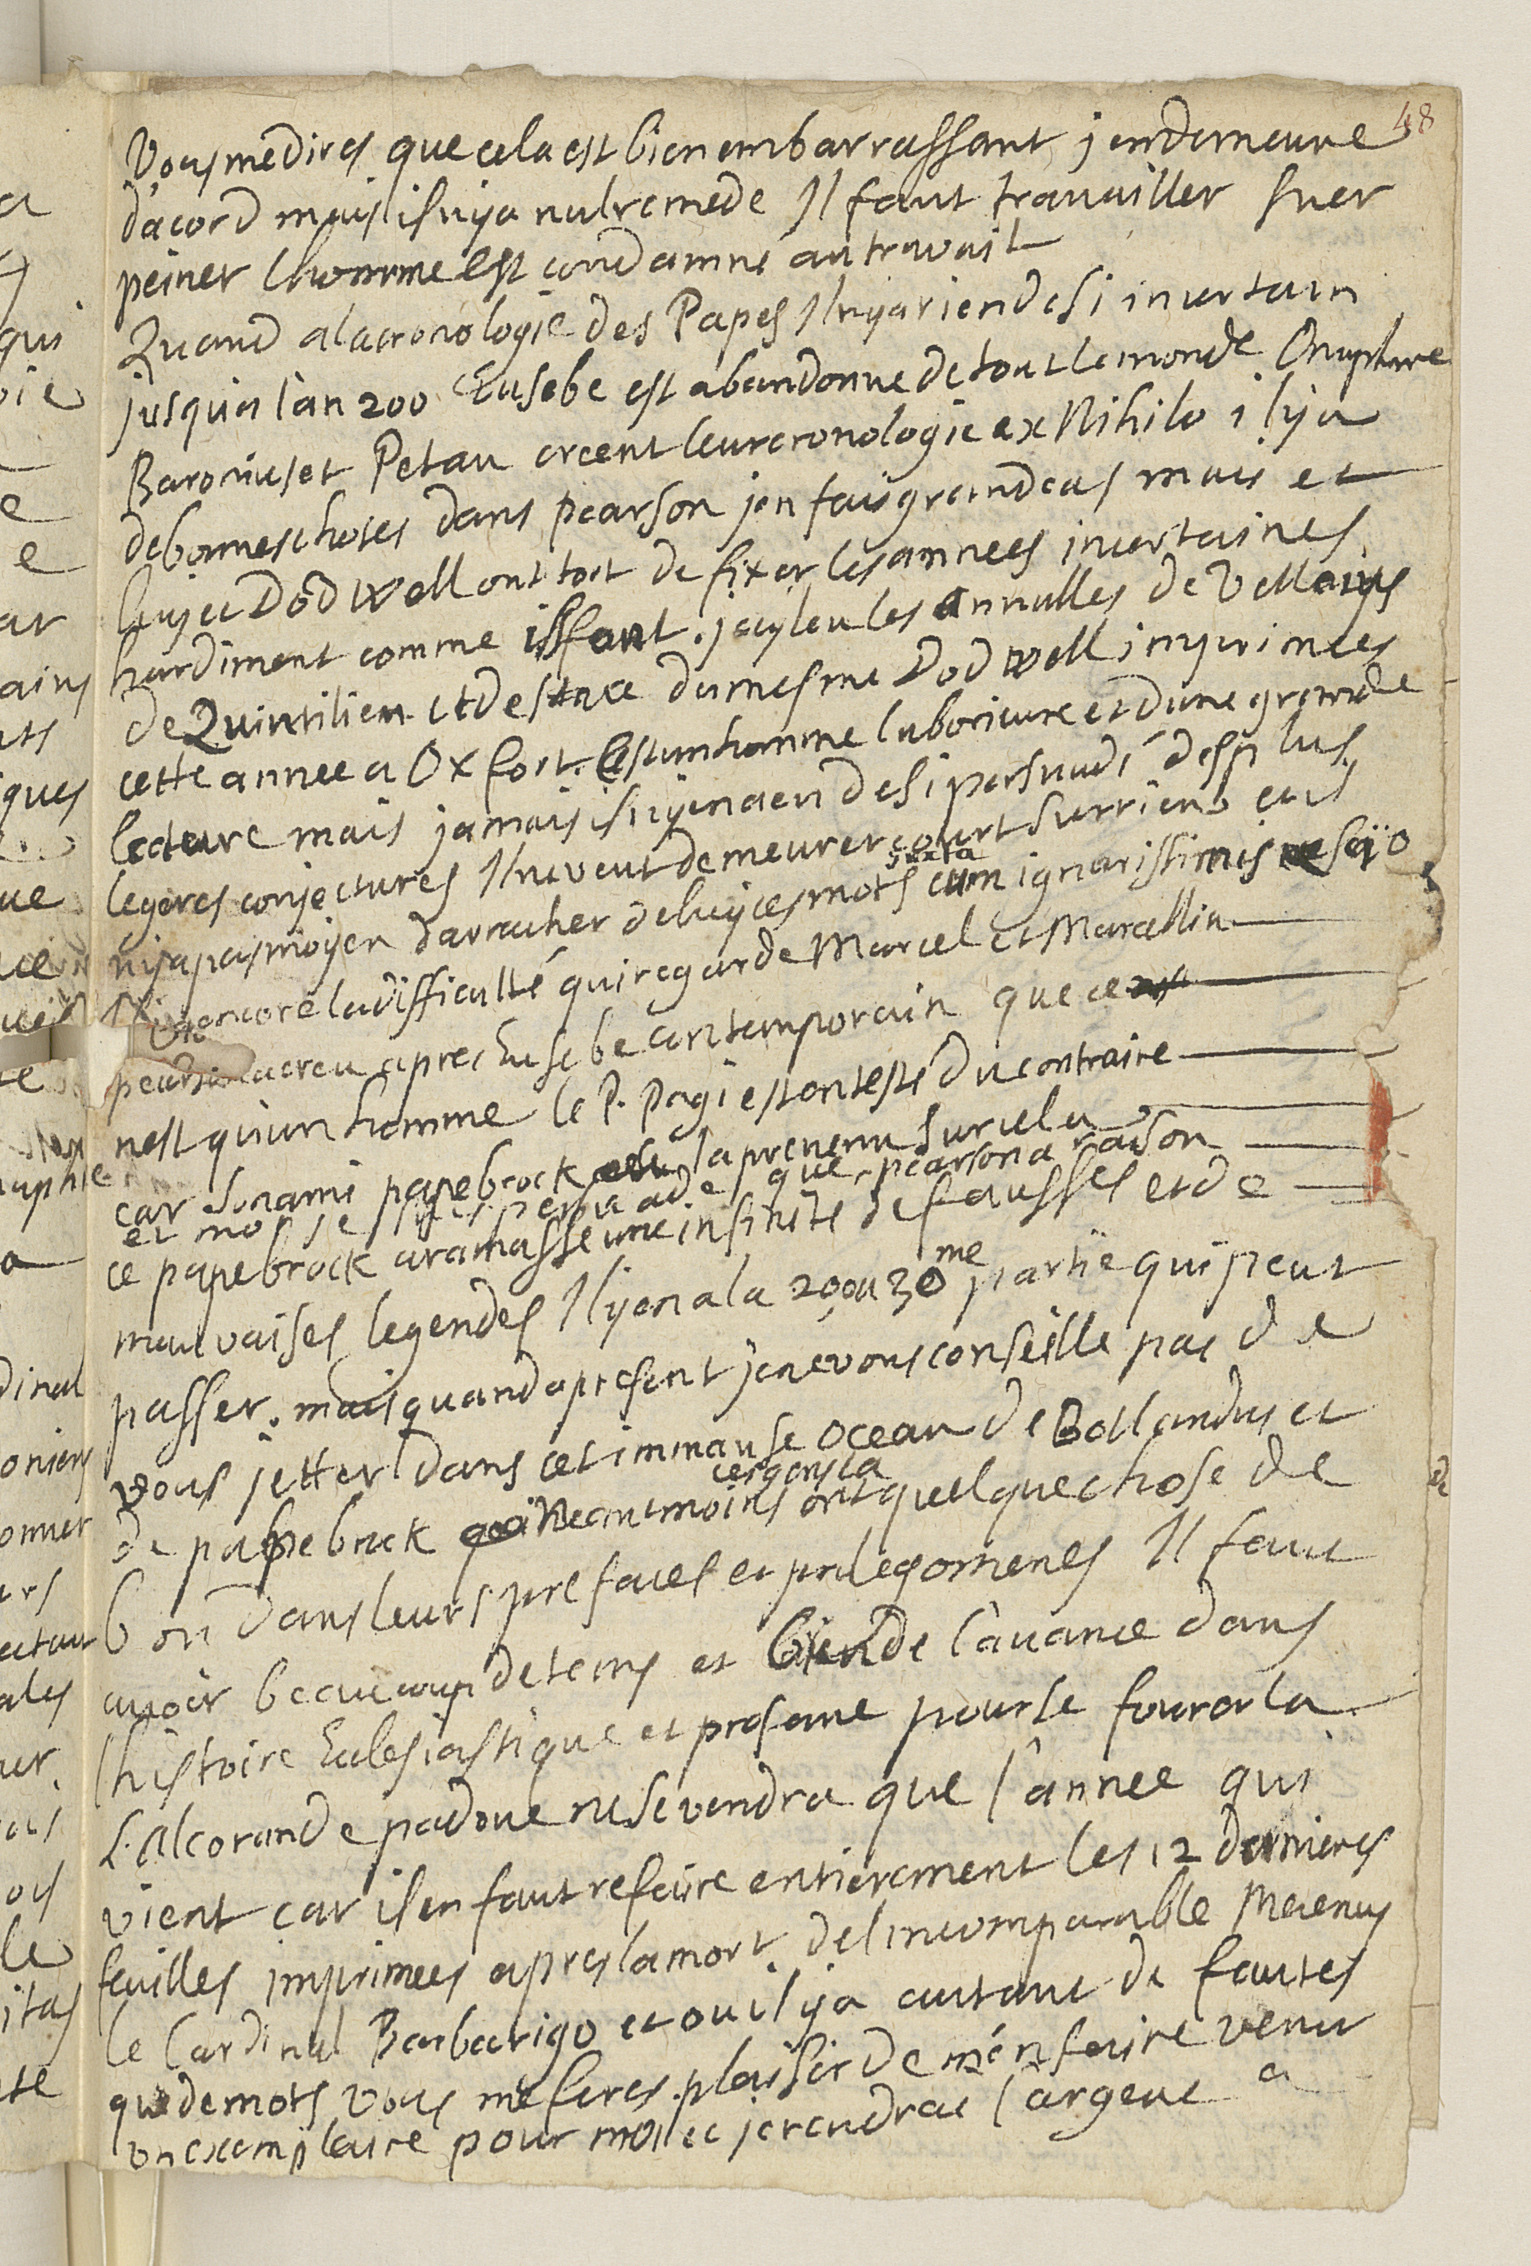 48
Vous me dires que cela est bien embarrassant j en demeure
d'acord mais il ny a nul remede Il faut travailler suer
peiner l'homme est condamné au travail
Quand a la cronologie des Papes Il ny a rien de si incertain
jusqu'a l'an 200 Eusebe est abandonné de tout le monde Onuphre
Baronius et Petau creent leur cronologie ex Nihilo il y a
de bonnes choses dans pearson jen fais grand cas mais et
luy et Dodwell ont tort de fixer les années incertaines
hardiment comme ils font. jay leu les annalles de Velleius
de Quintilien et de stace du mesme Dodwell imprimées
cette année a Oxfort. C'est un homme laborieux et d'une grande
lecteure mais jamais il ny en a eu de si persuadé de plus
legeres conjectures Il ne veut demeurer court sur rien et il
ny a pas moyen d'arracher de luy ces mots cum ignarissimis scio
juxta
Il y a encore la difficulté qui regarde Marcel et Marcellin
pearson a creu apres Eusebe contemporain que ce
n'est qu'un homme le P. Pagi est entesté du contraire
car son ami papebrock la prevenu sur cela
et moi je suis persuadé que pearson a raison
ce papebrock a ramassé une infinité de fausses et de
mauvaises legendes Il y en a la 20 ou 30me partie qui peut
passer. mais quand a present je ne vous conseille pas de
vous jetter dans cet immanse ocean de Bollandus et
ces gens la
de papebrock Neantmoins ont quelque chose de
bon dans leurs prefaces et prolegomenes Il faut
avoir beaucoup de tems et bien de l'avance dans
l'histoire Eclesiastique et profane pour se fourer la
L'Alcoran de padoue ne se vendra que l'année qui
vient car il en faut refaire entierement les 12 dernieres
feuilles imprimees apres la mort de l incomparable Mecenas
le Cardinal Barbarigo et ou il y a autant de fautes
que de mots vous me feres plaisir de m'en faire venir
un exemplaire pour moi et je rendrai l'argent a